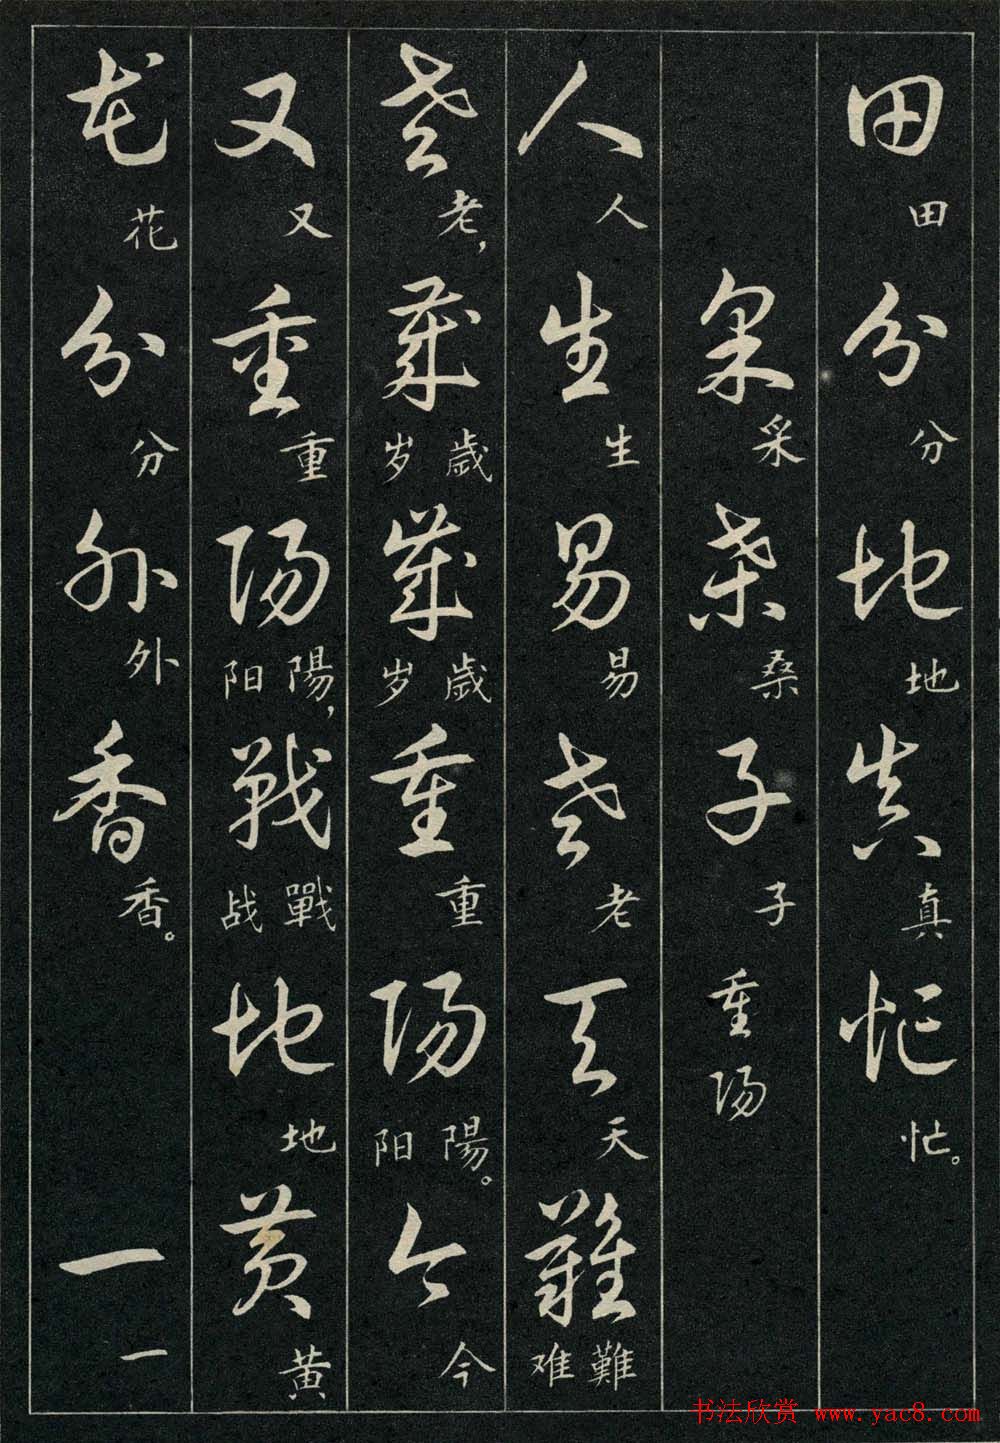 田田分分地地真真忙忙。
采采桑桑子子重陽
人人生生易易老老天天難難难
老老，歲歲岁歲歲岁重重陽陽阳。今今
又又重重陽陽阳，戰戰战地地黄黄
花花分分外外香香。一一
书法欣赏 www.yac8.com